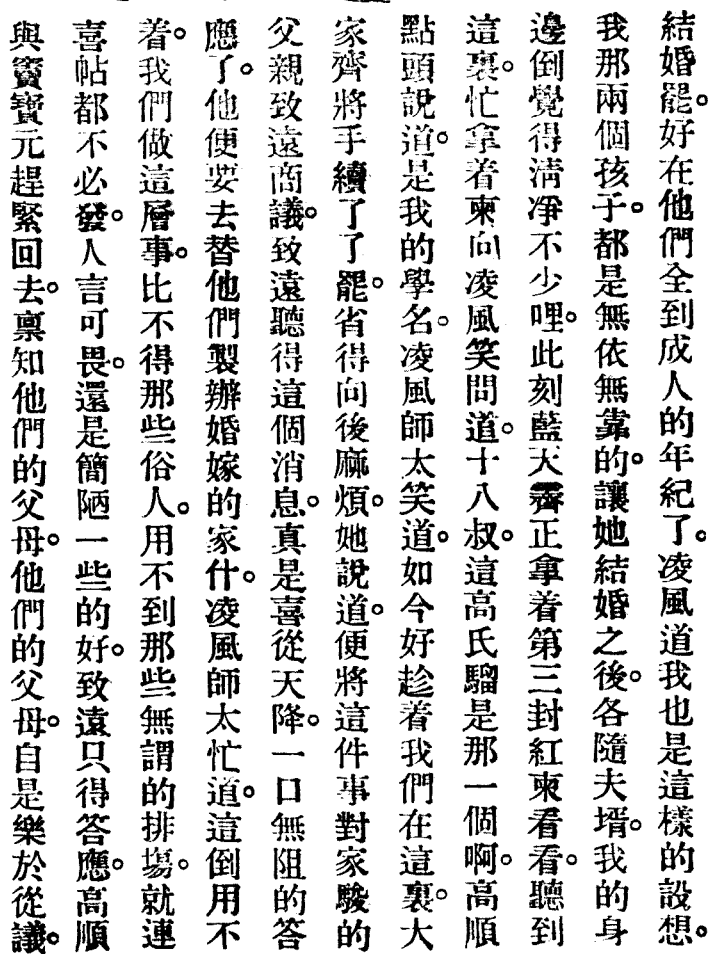 結婚罷。好在他們全到成人的年紀了。凌風道我也是這樣的設想。
我那兩個孩子。都是無依無靠的。讓她結婚之後。各隨夫壻。我的身
邊倒覺得淸淨不少哩。此刻藍天霽正拿着第三封紅柬看看。聽到
這裏。忙拿着柬向凌風笑問道。十八叔。這高氏騮是那一個啊。高順
點頭說道。是我的學名。凌風師太笑道。如今好趁着我們在這裏。大
家齊將手續了了罷。省得向後麻煩。她說道。便將這件事對家駿的
父親致遠商議。致遠聽得這個消息。真是喜從天降。一口無阻的答
應了。他便要去替他們製辦婚嫁的家什。凌風師太忙道。這倒用不
着。我們做這層事。比不得那些俗人。用不到那些無謂的排塲。就連
喜帖都不必發。人言可畏。還是簡陋一些的好。致遠只得答應。高順
與竇寶元趕緊回去。禀知他們的父母。他們的父母。自是樂於從議。